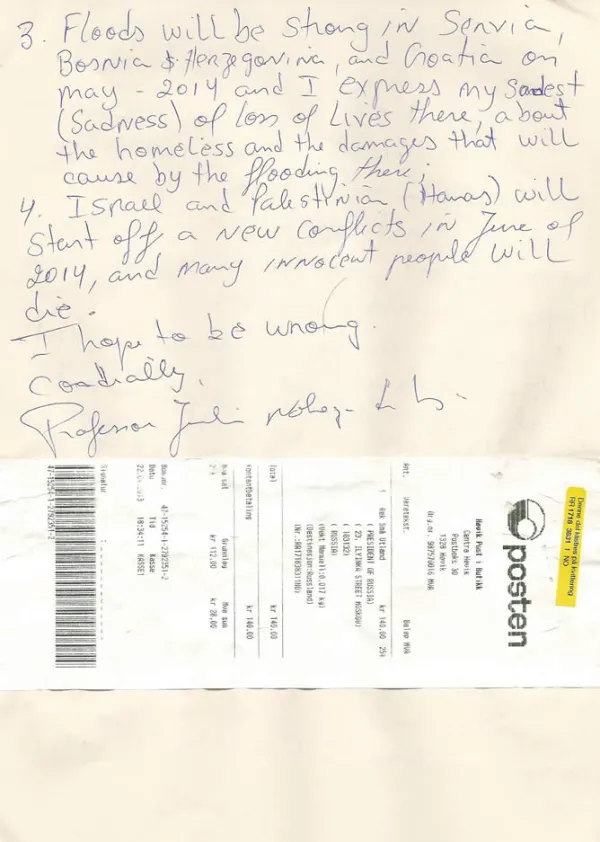 3. Floods will be strong in Servia,
Bosnia & Herzegovina, and Croatia on
may - 2014 and I express my sadest
(Sadness) of loss of lives there, about
the homeless and the damages that will
cause by the flooding there;
4. Israel and Palestinian (Hamas) will
start off a new conflicts in June of
2014, and many innocent people will
die.
I hope to be wrong.
Cordially,
Professor
posten
Denne del klistres på kvittering
RR 1718 3831 1 NO
Høvik Post i Butikk
Centra Høvik
Postboks 30
1329 Høvik
Org.nr. 987570016 MVA
Ant. Varetekst. Beløp MVA
1 Rek Småk Utland kr 140,00 25%
( PRESIDENT OF RUSSIA)
( 23, ILYINKA STREET MOSKOW)
( 103132)
( RUSSIA)
(Vekt Manuell:0,017 kg)
(Destinasjon:Russland)
(Nr.:RR171838311NO)
Total kr 140,00
Kontantbetaling kr 140,00
Mva sat Grunnlag Mva sum
kr 112,00 kr 28,00
Bon.nr. 47-15254-1-2792351-2
Dato Tid Kasse
18:34:11 KASSE1
47-15254-1-2792351-2